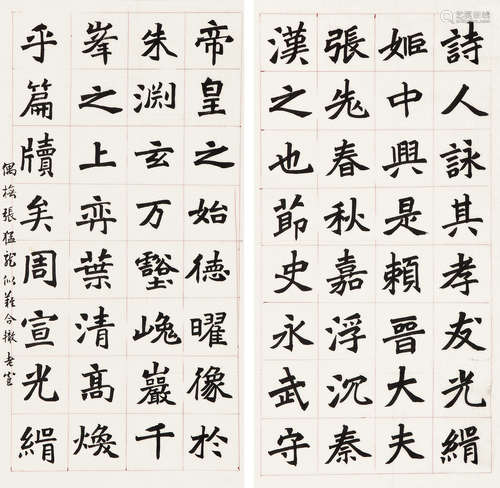 詩人詠其孝友光緝
姬中興是賴晉大夫
張先春秋嘉浮沉秦
漢之也節史永武守
帝皇之始德曜像於
朱淵玄万壑巍巖千
峯之上弈葉清高煥
乎篇牘矣周宣光緝
偶撫張猛龍似難合轍